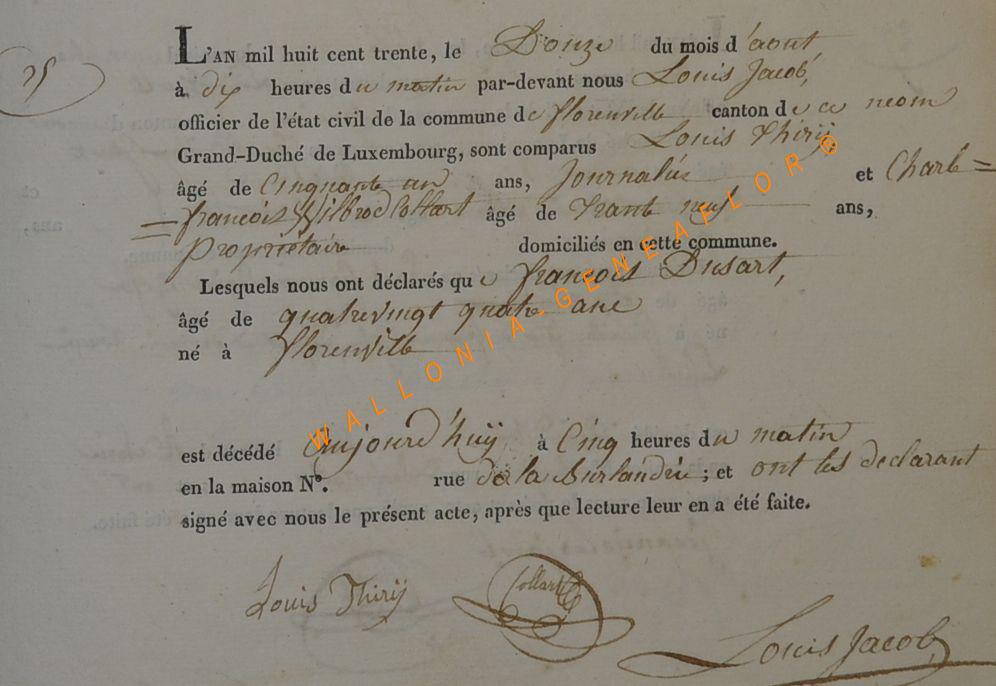 25
L'AN mil huit cent trente, le Douze du mois d'aout
à dix heures du matin par-devant nous Louis Jacob,
officier de l'état civil de la commune de florenville canton de ce nom
Grand-Duché de Luxembourg, sont comparus Louis Thirÿ
âgé de Cinquante un ans, Journalier et Charle =
= francois Collart âgé de Trante neuf ans,
proprietaire domiciliés en cette commune.
Lesquels nous ont déclarés que francois Dusart,
âgé de quatrevingt quatre ans
né à florenville
est décédé aujourd'huÿ à Cinq heures du matin
en la maison N°. rue de la ; et ont les declarant
signé avec nous le présent acte, après que lecture leur en a été faite.
Louis Thirÿ Collart Louis Jacob
WALLONIA-GENEAFLOR®